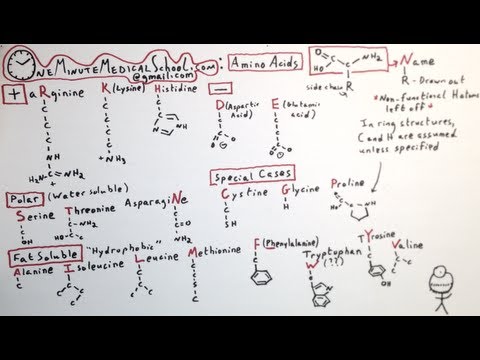 OneMinuteMedicalSchool.com: Amino Acids
@gmail.com
O NH₂
HO R
side chain
Name
R-Drawn out
*Non-functional H atoms
left off*
In ring structures,
C and H are assumed
unless specified
+ aRginine K (Lysine) Histidine −
D (Aspartic Acid) E (Glutamic acid)
Polar (Water soluble)
Serine Threonine AsparagiNe
Special Cases
Cystine Glycine Proline
Fat Soluble "Hydrophobic"
Alanine Isoleucine Leucine Methionine F (Phenylalanine) Tryptophan
W (??)
TYrosine Valine